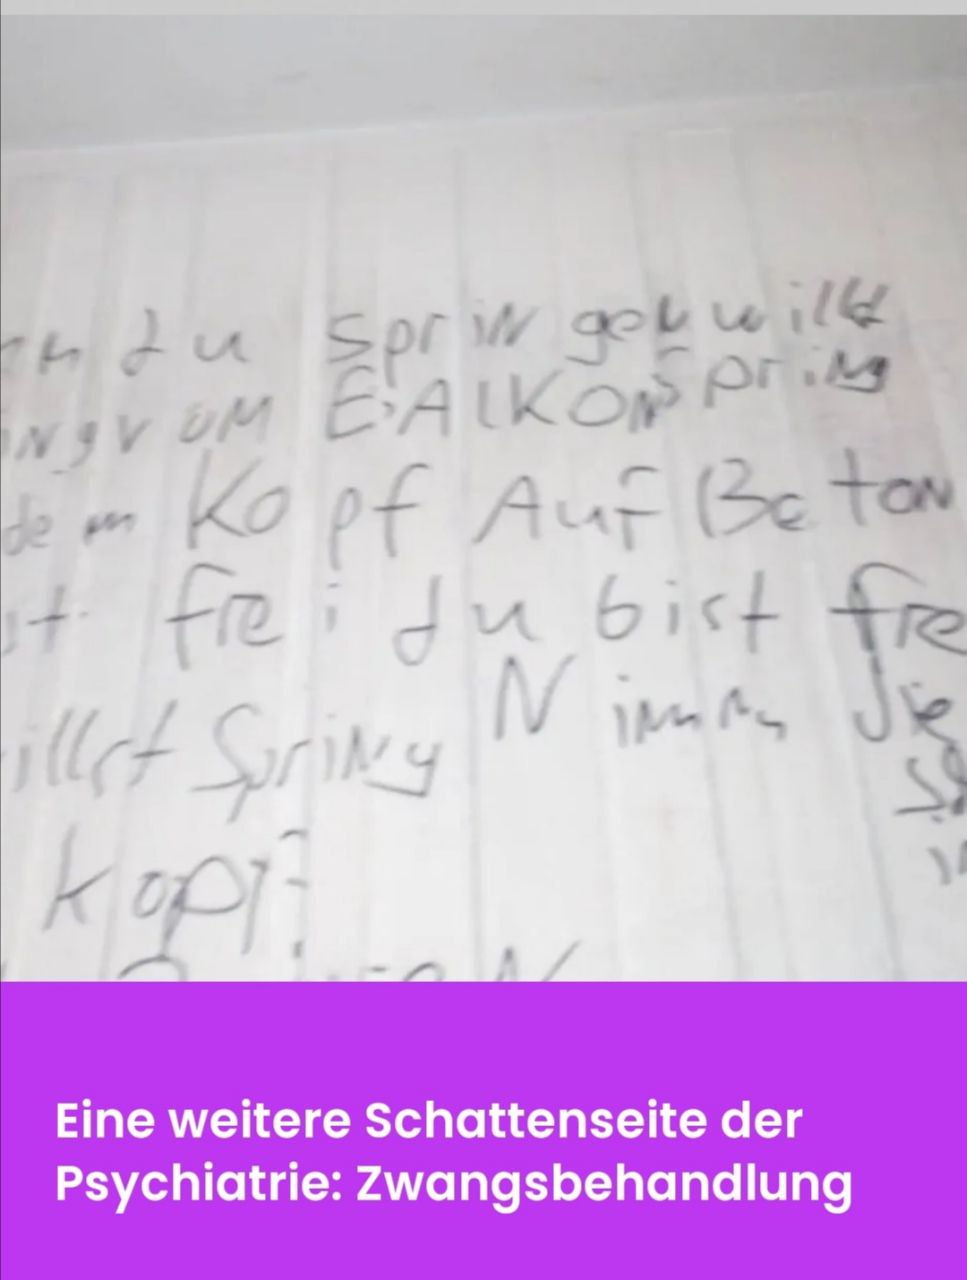 du springen willst
vom BAlKON spring
dem Kopf Auf Beton
frei du bist fre
illst Spring Nimm Sie
Kopf?
Eine weitere Schattenseite der
Psychiatrie: Zwangsbehandlung